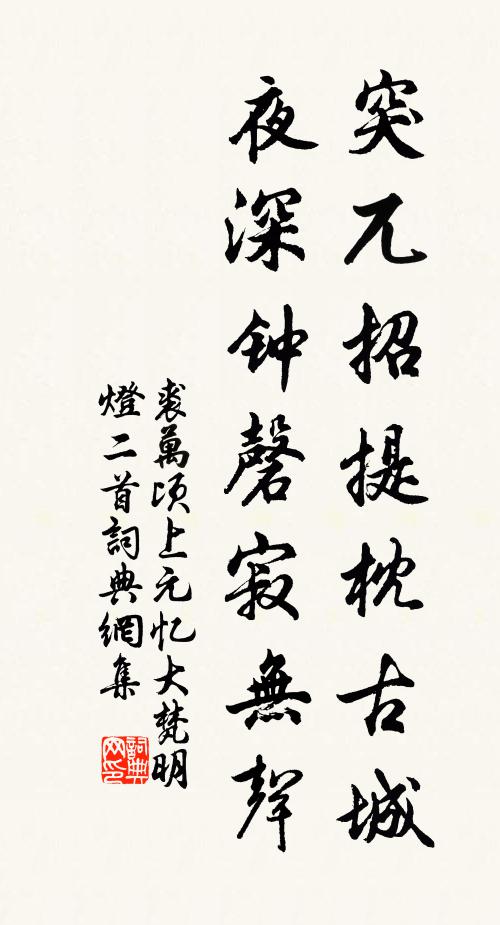 突兀招提枕古城
夜深钟磬寂無聲
裘萬頃上元忆大梵明
燈二首詞典網集
詞典
网印